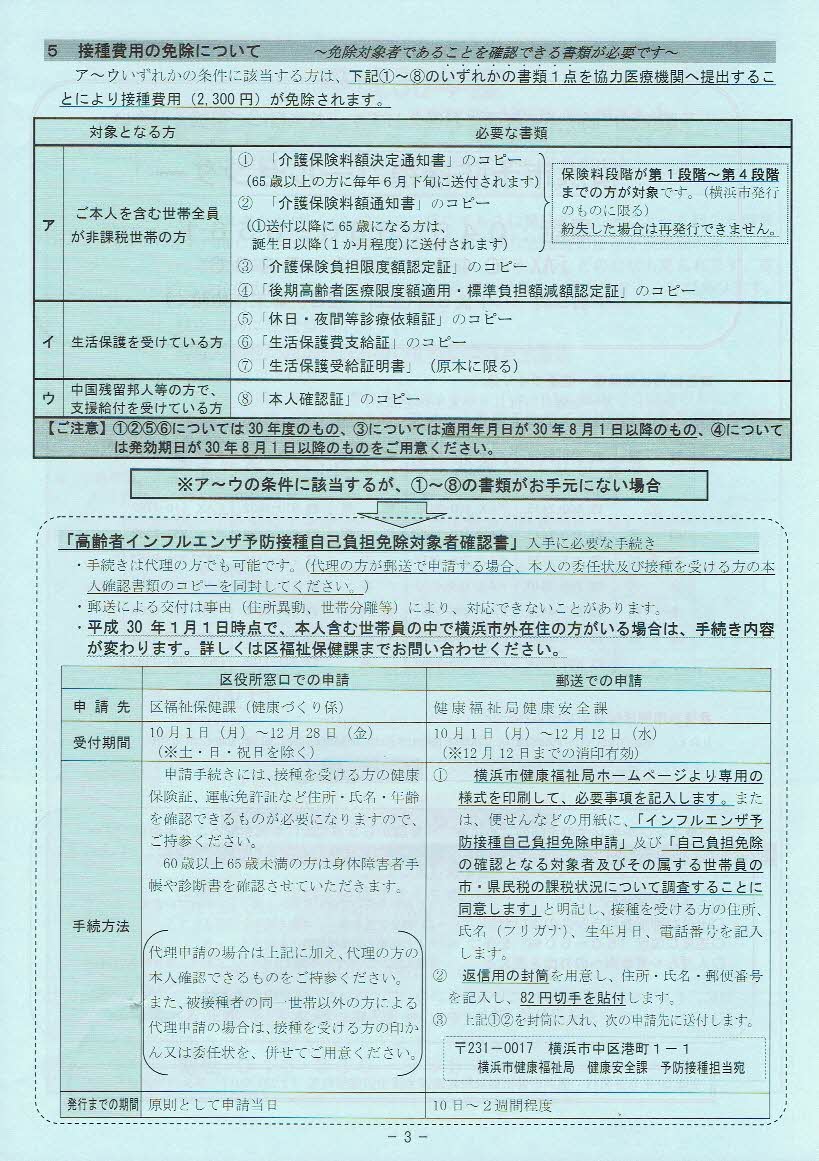 ５　接種費用の免除について　～免除対象者であることを確認できる書類が必要です～
ア～ウいずれかの条件に該当する方は、下記①～⑧のいずれかの書類１点を協力医療機関へ提出するこ
とにより接種費用（2,300 円）が免除されます。
対象となる方
必要な書類
ア
ご本人を含む世帯全員
が非課税世帯の方
①　「介護保険料額決定通知書」のコピー
（65 歳以上の方に毎年６月下旬に送付されます）
②　「介護保険料額通知書」のコピー
（①送付以降に 65 歳になる方は、
誕生日以降（１か月程度）に送付されます）
保険料段階が第１段階～第４段階
までの方が対象です。（横浜市発行
のものに限る）
紛失した場合は再発行できません。
③「介護保険負担限度額認定証」のコピー
④「後期高齢者医療限度額適用・標準負担額減額認定証」のコピー
イ
生活保護を受けている方
⑤「休日・夜間等診療依頼証」のコピー
⑥「生活保護費支給証」のコピー
⑦「生活保護受給証明書」（原本に限る）
ウ
中国残留邦人等の方で、
支援給付を受けている方
⑧「本人確認証」のコピー
【ご注意】①②⑤⑥については 30 年度のもの、③については適用年月日が 30 年８月１日以降のもの、④について
は発効期日が 30 年８月１日以降のものをご用意ください。
※ア～ウの条件に該当するが、①～⑧の書類がお手元にない場合
「高齢者インフルエンザ予防接種自己負担免除対象者確認書」入手に必要な手続き
・手続きは代理の方でも可能です。（代理の方が郵送で申請する場合、本人の委任状及び接種を受ける方の本
人確認書類のコピーを同封してください。）
・郵送による交付は事由（住所異動、世帯分離等）により、対応できないことがあります。
・平成 30 年１月１日時点で、本人含む世帯員の中で横浜市外在住の方がいる場合は、手続き内容
が変わります。詳しくは区福祉保健課までお問い合わせください。
区役所窓口での申請
郵送での申請
申 請 先
区福祉保健課（健康づくり係）
健康福祉局健康安全課
受付期間
10 月１日（月）～12 月 28 日（金）
（※土・日・祝日を除く）
10 月１日（月）～12 月 12 日（水）
（※12 月 12 日までの消印有効）
手続方法
申請手続きには、接種を受ける方の健康
保険証、運転免許証など住所・氏名・年齢
を確認できるものが必要になりますので、
ご持参ください。
60 歳以上 65 歳未満の方は身体障害者手
帳や診断書を確認させていただきます。
代理申請の場合は上記に加え、代理の方の
本人確認できるものをご持参ください。
また、被接種者の同一世帯以外の方による
代理申請の場合は、接種を受ける方の印か
ん又は委任状を、併せてご用意ください。
①　横浜市健康福祉局ホームページより専用の
様式を印刷して、必要事項を記入します。また
は、便せんなどの用紙に、「インフルエンザ予
防接種自己負担免除申請」及び「自己負担免除
の確認となる対象者及びその属する世帯員の
市・県民税の課税状況について調査することに
同意します」と明記し、接種を受ける方の住所、
氏名（フリガナ）、生年月日、電話番号を記入
します。
②　返信用の封筒を用意し、住所・氏名・郵便番号
を記入し、82 円切手を貼付します。
③　上記①②を封筒に入れ、次の申請先に送付します。
〒231-0017　横浜市中区港町１－１
横浜市健康福祉局　健康安全課　予防接種担当宛
発行までの期間
原則として申請当日
10 日～２週間程度
－ 3 －